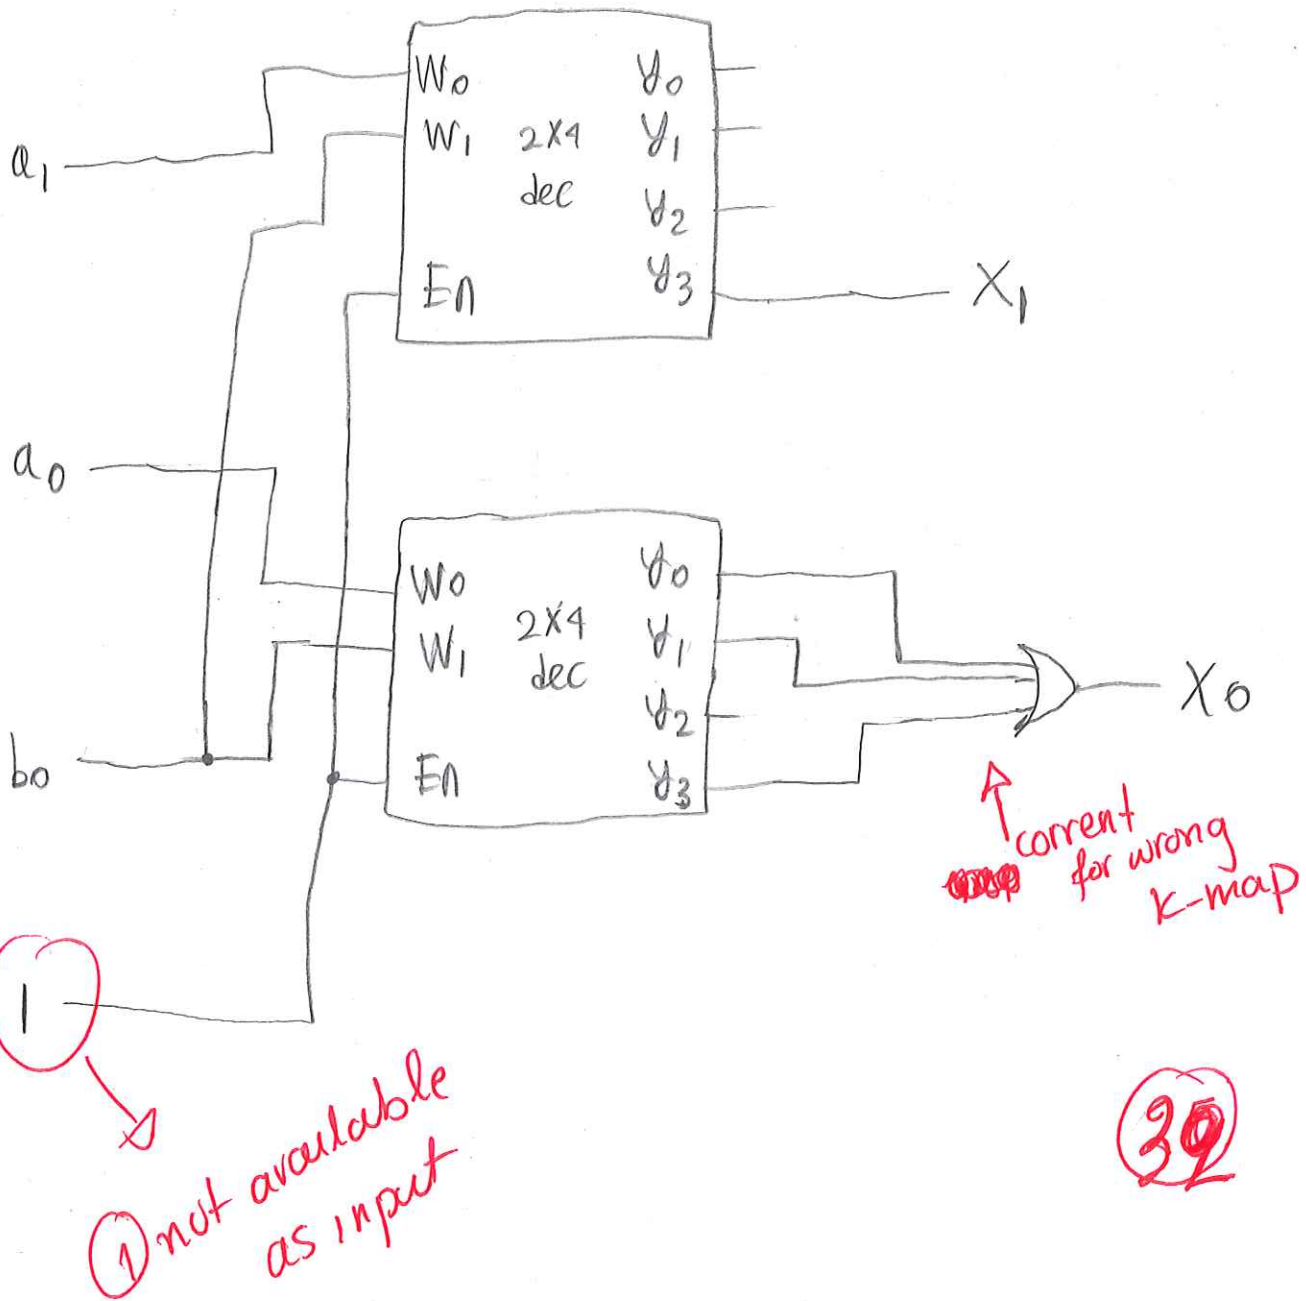 a1
W0
W1
En
2x4
dec
y0
y1
y2
y3
X1
a0
b0
W0
W1
En
2x4
dec
y0
y1
y2
y3
X0
corrent
for wrong
K-map
1
1 not available
as input